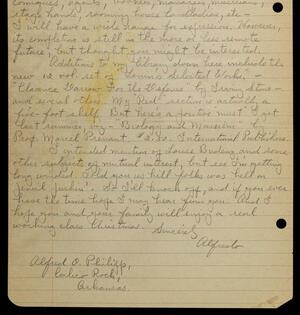 comiques, agents, bookers, managers, musicians,
stage hands, rooming house landladies, etc —
I will have a wide range for expression. However,
its completion is still in the more or less remote
future, but thought you might be interested.
Additions to my library down here include the
new 12 vol. set of Lenin's Selected Works —
"Clarence Darrow For The Defense" by Irving Stone —
and several others. My Red section is actually a
five-foot shelf. But here's a positive must I got
last summer, — "Biology and Marxism" — by
Prof. Marcel Prenant $2.50. International Publishers.
I intended mention of Louis Budenz and some
other subjects of mutual interest, but see I'm getting
long winded. Told you us hill folks was hell on
jawin'. So I'll knock off, and if you ever
have the time hope I may hear from you. And I
hope you and your family will enjoy a real
working class Christmas.
Sincerely
Alfredo
Alfred O. Philipp,
Calico Rock,
Arkansas.